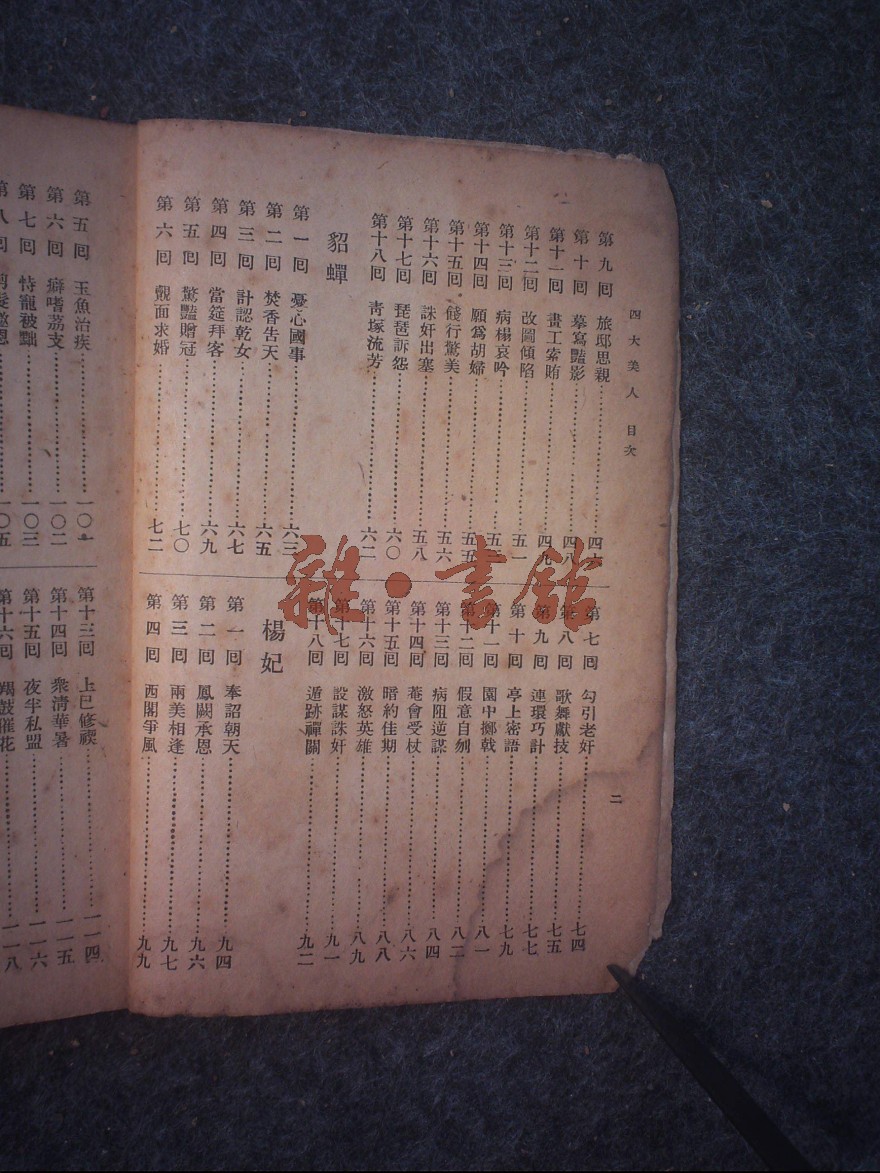 四大美人 目次
二
第九回 旅邸思親 四六
第十回 摹寫豔影 四八
第十一回 畫工索賄 四九
第十二回 改圖傾陷 五一
第十三回 病榻哀吟 五三
第十四回 願爲胡婦 五五
第十五回 餞行驚美 五六
第十六回 誅奸出塞 五八
第十七回 琵琶訴怨 六〇
第十八回 靑塚流芳 六二
貂蟬
第一回 憂心國事 六三
第二回 焚香告天 六五
第三回 計認乾女 六七
第四回 當筵拜客 六九
第五回 驚豔贈冠 七〇
第六回 覿面求婚 七二
第七回 勾引老奸 七四
第八回 歌舞獻技 七五
第九回 連環巧計 七七
第十回 亭上密語 七九
第十一回 園中擲戟 八一
第十二回 假意自刎 八二
第十三回 病阻逆謀 八四
第十四回 菴會受杖 八六
第十五回 暗約佳期 八八
第十六回 激怒英雄 八九
第十七回 設謀誅奸 九一
第十八回 遁跡禪關 九二
楊妃
第一回 奉詔朝天 九四
第二回 鳳闕承恩 九六
第三回 兩美相逢 九七
第四回 西閣爭風 九九
第五回 玉魚治疾 一〇
第六回 癖嗜荔支 一〇二
第七回 恃寵被黜 一〇三
第八回 一〇五
第十三回 上巳修禊 一一四
第十四回 衆淸華暑 一一五
第十五回 夜半私盟 一一六
第十六回 羯鼓催花 一一八
雜·書館